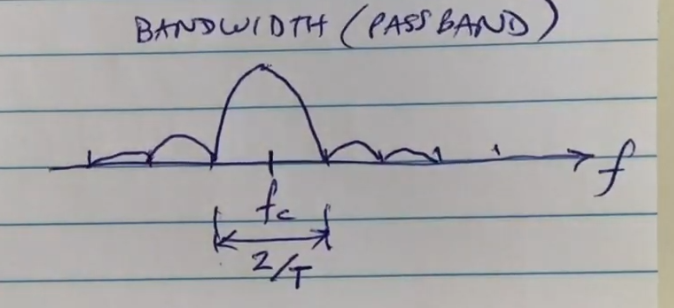 BANDWIDTH (PASSBAND)
f
fc
2/T